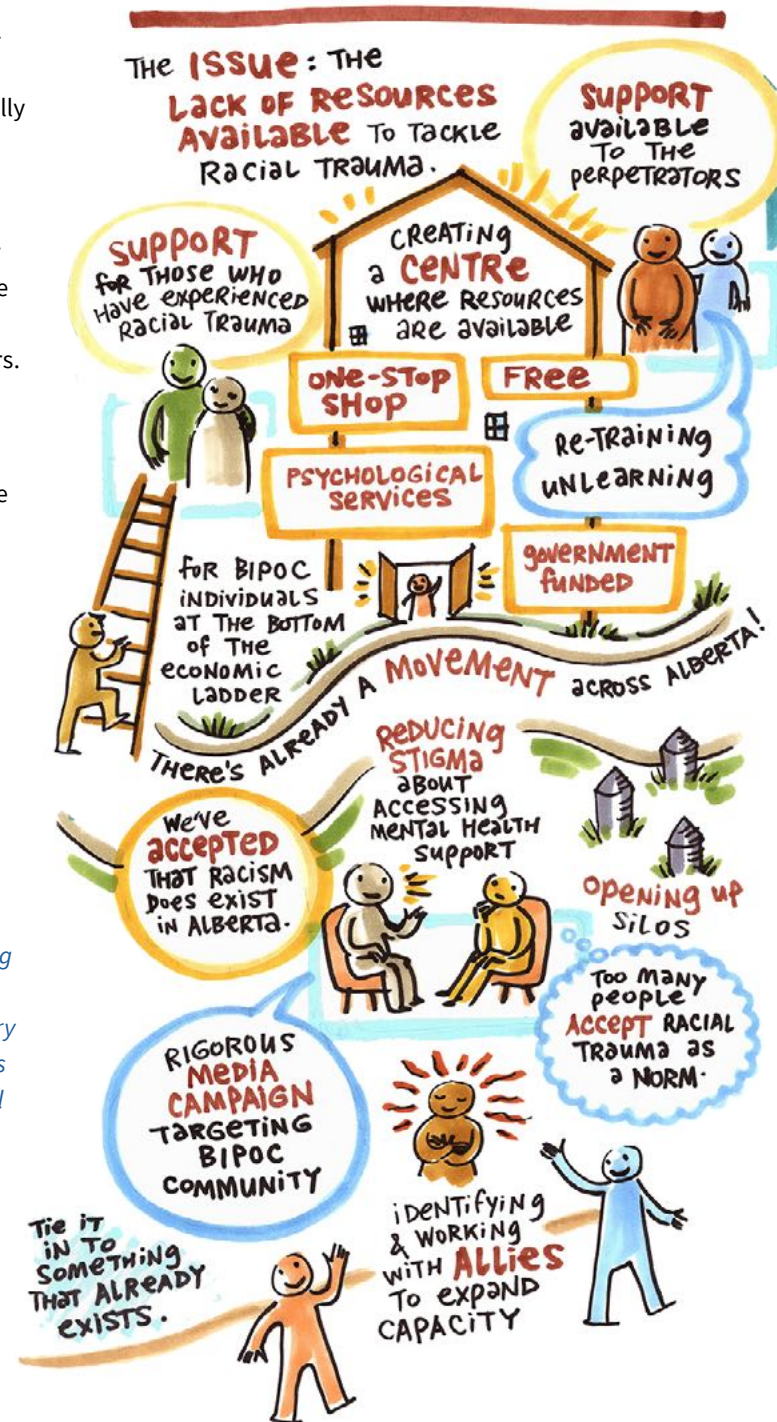 lly
e
rs.
e
THE ISSUE: THE
LACK OF RESOURCES
AVAILABLE TO TACKLE
RACIAL TRAUMA.
SUPPORT
AVAILABLE
TO THE
PERPETRATORS
SUPPORT
FOR THOSE WHO
HAVE EXPERIENCED
RACIAL TRAUMA
CREATING
A CENTRE
WHERE RESOURCES
ARE AVAILABLE
ONE-STOP
SHOP
FREE
RE-TRAINING
UNLEARNING
PSYCHOLOGICAL
SERVICES
GOVERNMENT
FUNDED
FOR BIPOC
INDIVIDUALS
AT THE BOTTOM
OF THE
ECONOMIC
LADDER
THERE'S ALREADY A MOVEMENT ACROSS ALBERTA!
REDUCING
STIGMA
ABOUT
ACCESSING
MENTAL HEALTH
SUPPORT
WE'VE
ACCEPTED
THAT RACISM
DOES EXIST
IN ALBERTA.
OPENING UP
SILOS
g
ry
s
l
TOO MANY
PEOPLE
ACCEPT RACIAL
TRAUMA AS
A NORM.
RIGOROUS
MEDIA
CAMPAIGN
TARGETING
BIPOC
COMMUNITY
TIE IT
IN TO
SOMETHING
THAT ALREADY
EXISTS.
IDENTIFYING
& WORKING
WITH ALLIES
TO EXPAND
CAPACITY